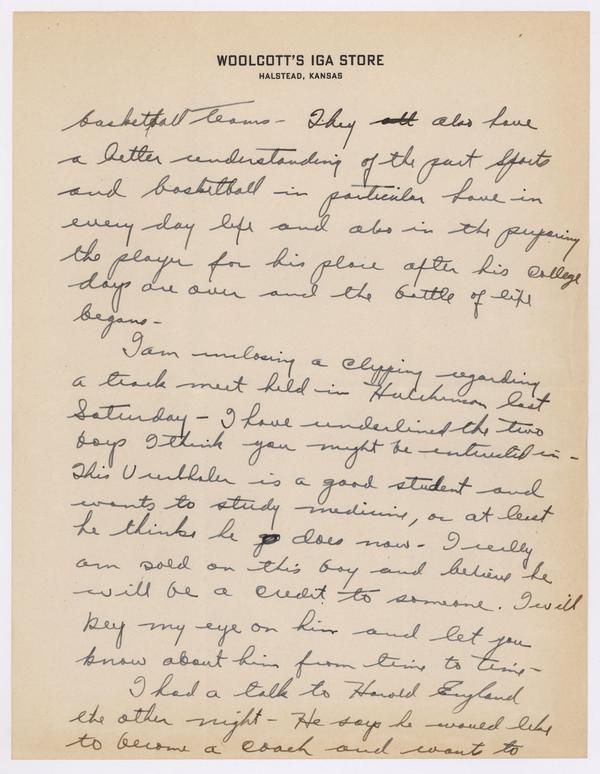 WOOLCOTT'S IGA STORE
HALSTEAD, KANSAS
basketball teams - They all also have
a better understanding of the part sports
and basketball in particular have in
every day life and also in the preparing
the player for his place after his college
days are over and the battle of life
begans -
I am inclosing a clipping regarding
a track meet held in Hutchinson last
Saturday - I have underlined the two
boys I think you might be interested in -
This is a good student and
wants to study medicine, or at least
he thinks he does now - I really
am sold on this boy and believe he
will be a credit to someone. I will
keep my eye on him and let you
know about him from time to time -
I had a talk to Harold England
the other night - He says he would like
to become a coach and wants to